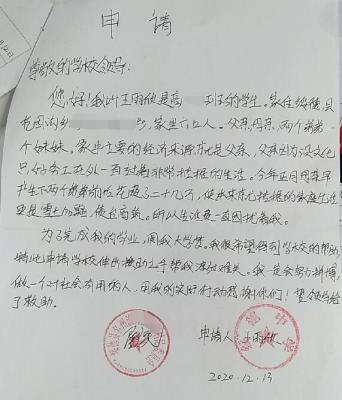 申请
尊敬的学校领导:
您好!我叫王雨欣是高 班的学生。家住绥德县
号,家里六口人。父亲,母亲,两个弟弟
个妹妹。家中主要的经济来源就是父亲,父亲因为没文化
只好务工在外一直过着非常拮据的生活。今年正月母亲早
产生下两个弟弟前后花费了二十几万,使本来就拮据的家庭生活
更是雪上加霜,债台高筑。所以生活费一直困扰着我。
为了完成我的学业,圆我大学梦。我很希望得到学校的帮助,
特此申请学校伸出援助之手帮我渡过难关。我一定会努力拼搏,
做一个对社会有用的人,用我的实际行动感谢你们!望领导给
予救助。
申请人:王雨欣
2020.12.13